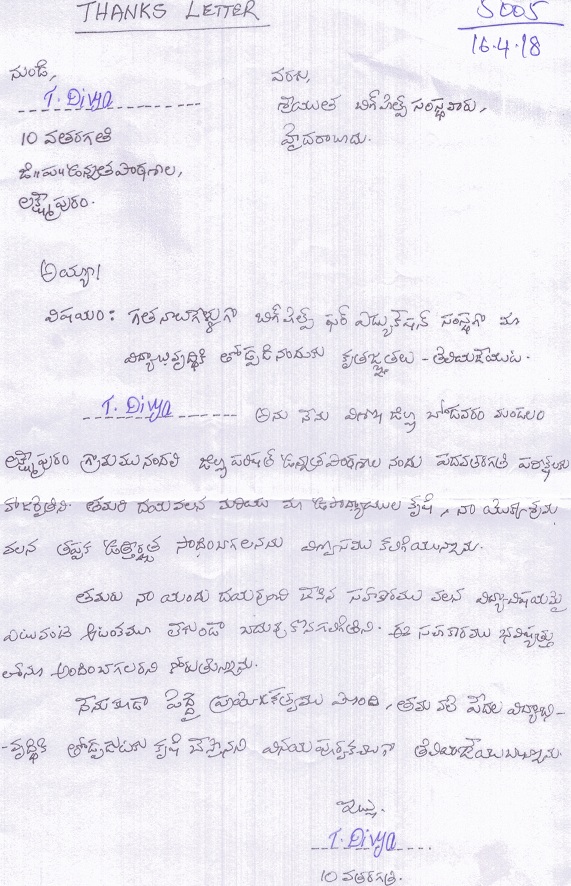 THANKS LETTER
S005
16.4.18
నుండి,
T. Divya
10 వతరగతి
జి॥ప॥ఉన్నతపాఠశాల,
లక్ష్మీపురం.
వరకు,
శ్రీయుత బిగ్ హెల్ప్ సంస్థవారు,
హైదరాబాదు.
అయ్యా!
విషయం: గతనాలుగేళ్ళుగా బిగ్ హెల్ప్ ఫర్ ఎడ్యుకేషన్ సంస్థగా మా
విద్యాభివృద్ధికి తోడ్పడినందుకు కృతజ్ఞతలు - తెలియజేయుట.
T. Divya అను నేను విశాఖ జిల్లా మండలం
లక్ష్మీపురం గ్రామమునందలి జిల్లా పరిషత్ ఉన్నతపాఠశాల నందు పదవతరగతి పరీక్షలకు
హాజరైతిని. తమరి దయవలన మరియు మా ఉపాధ్యాయుల కృషి, నా యొక్క శ్రమ
వలన తప్పక ఉత్తీర్ణత సాధించగలనను విశ్వాసము కలిగియున్నాను.
తమరు నా యందు దయవుంచి చేసిన సహకారము వలన విద్యావిషయమై
ఎటువంటి ఆటంకము లేకుండా చదువుకొనగలిగితిని. ఈ సహకారము భవిష్యత్తు
లోనూ అందించగలరని కోరుతున్నాను.
నేనుకూడా పెద్దై ప్రయోజకత్వము పొంది, తమ వలె పేదల విద్యాభి-
-వృద్ధికి తోడ్పడుటకు కృషి చేస్తానని వినయ పూర్వకముగా తెలియజేయుచున్నాను.
ఇట్లు.
T. Divya
10 వతరగతి.